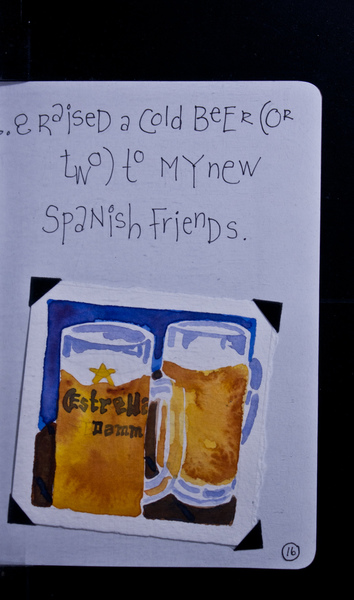 ..e Raised a Cold BeeR (OR
two) to MY new
SpaNish FrieNDs.
Estrella
Damm
16